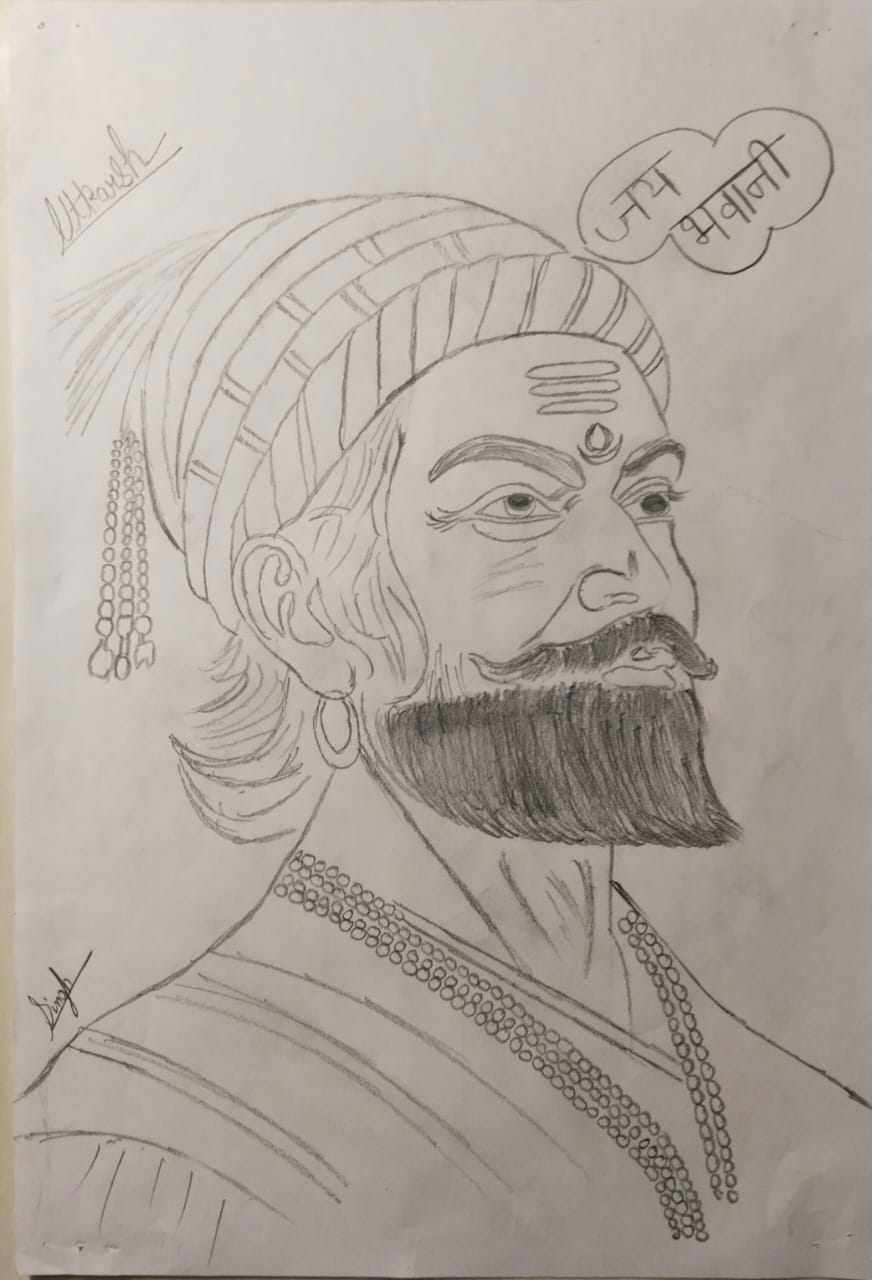 Utkarsh
जय
भवानी
Singh